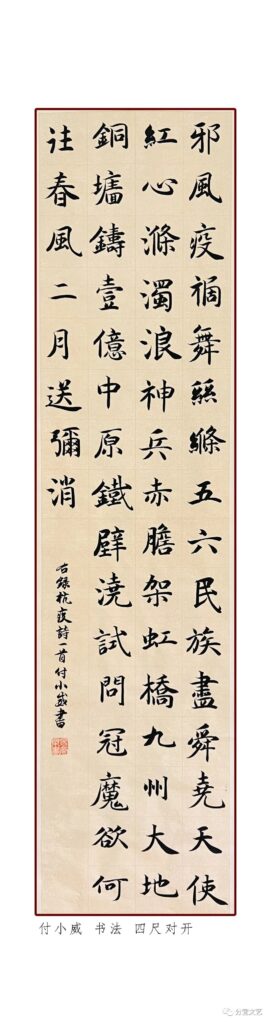 邪風疫祸舞絲縧五六民族盡舜堯天使
紅心滌濁浪神兵赤膽架虹橋九州大地
銅墻鑄壹億中原鐵壁澆試問冠魔欲何
往春風二月送彌消
右錄抗疫詩一首付小威書
付小威 书法 四尺对开
分享文艺